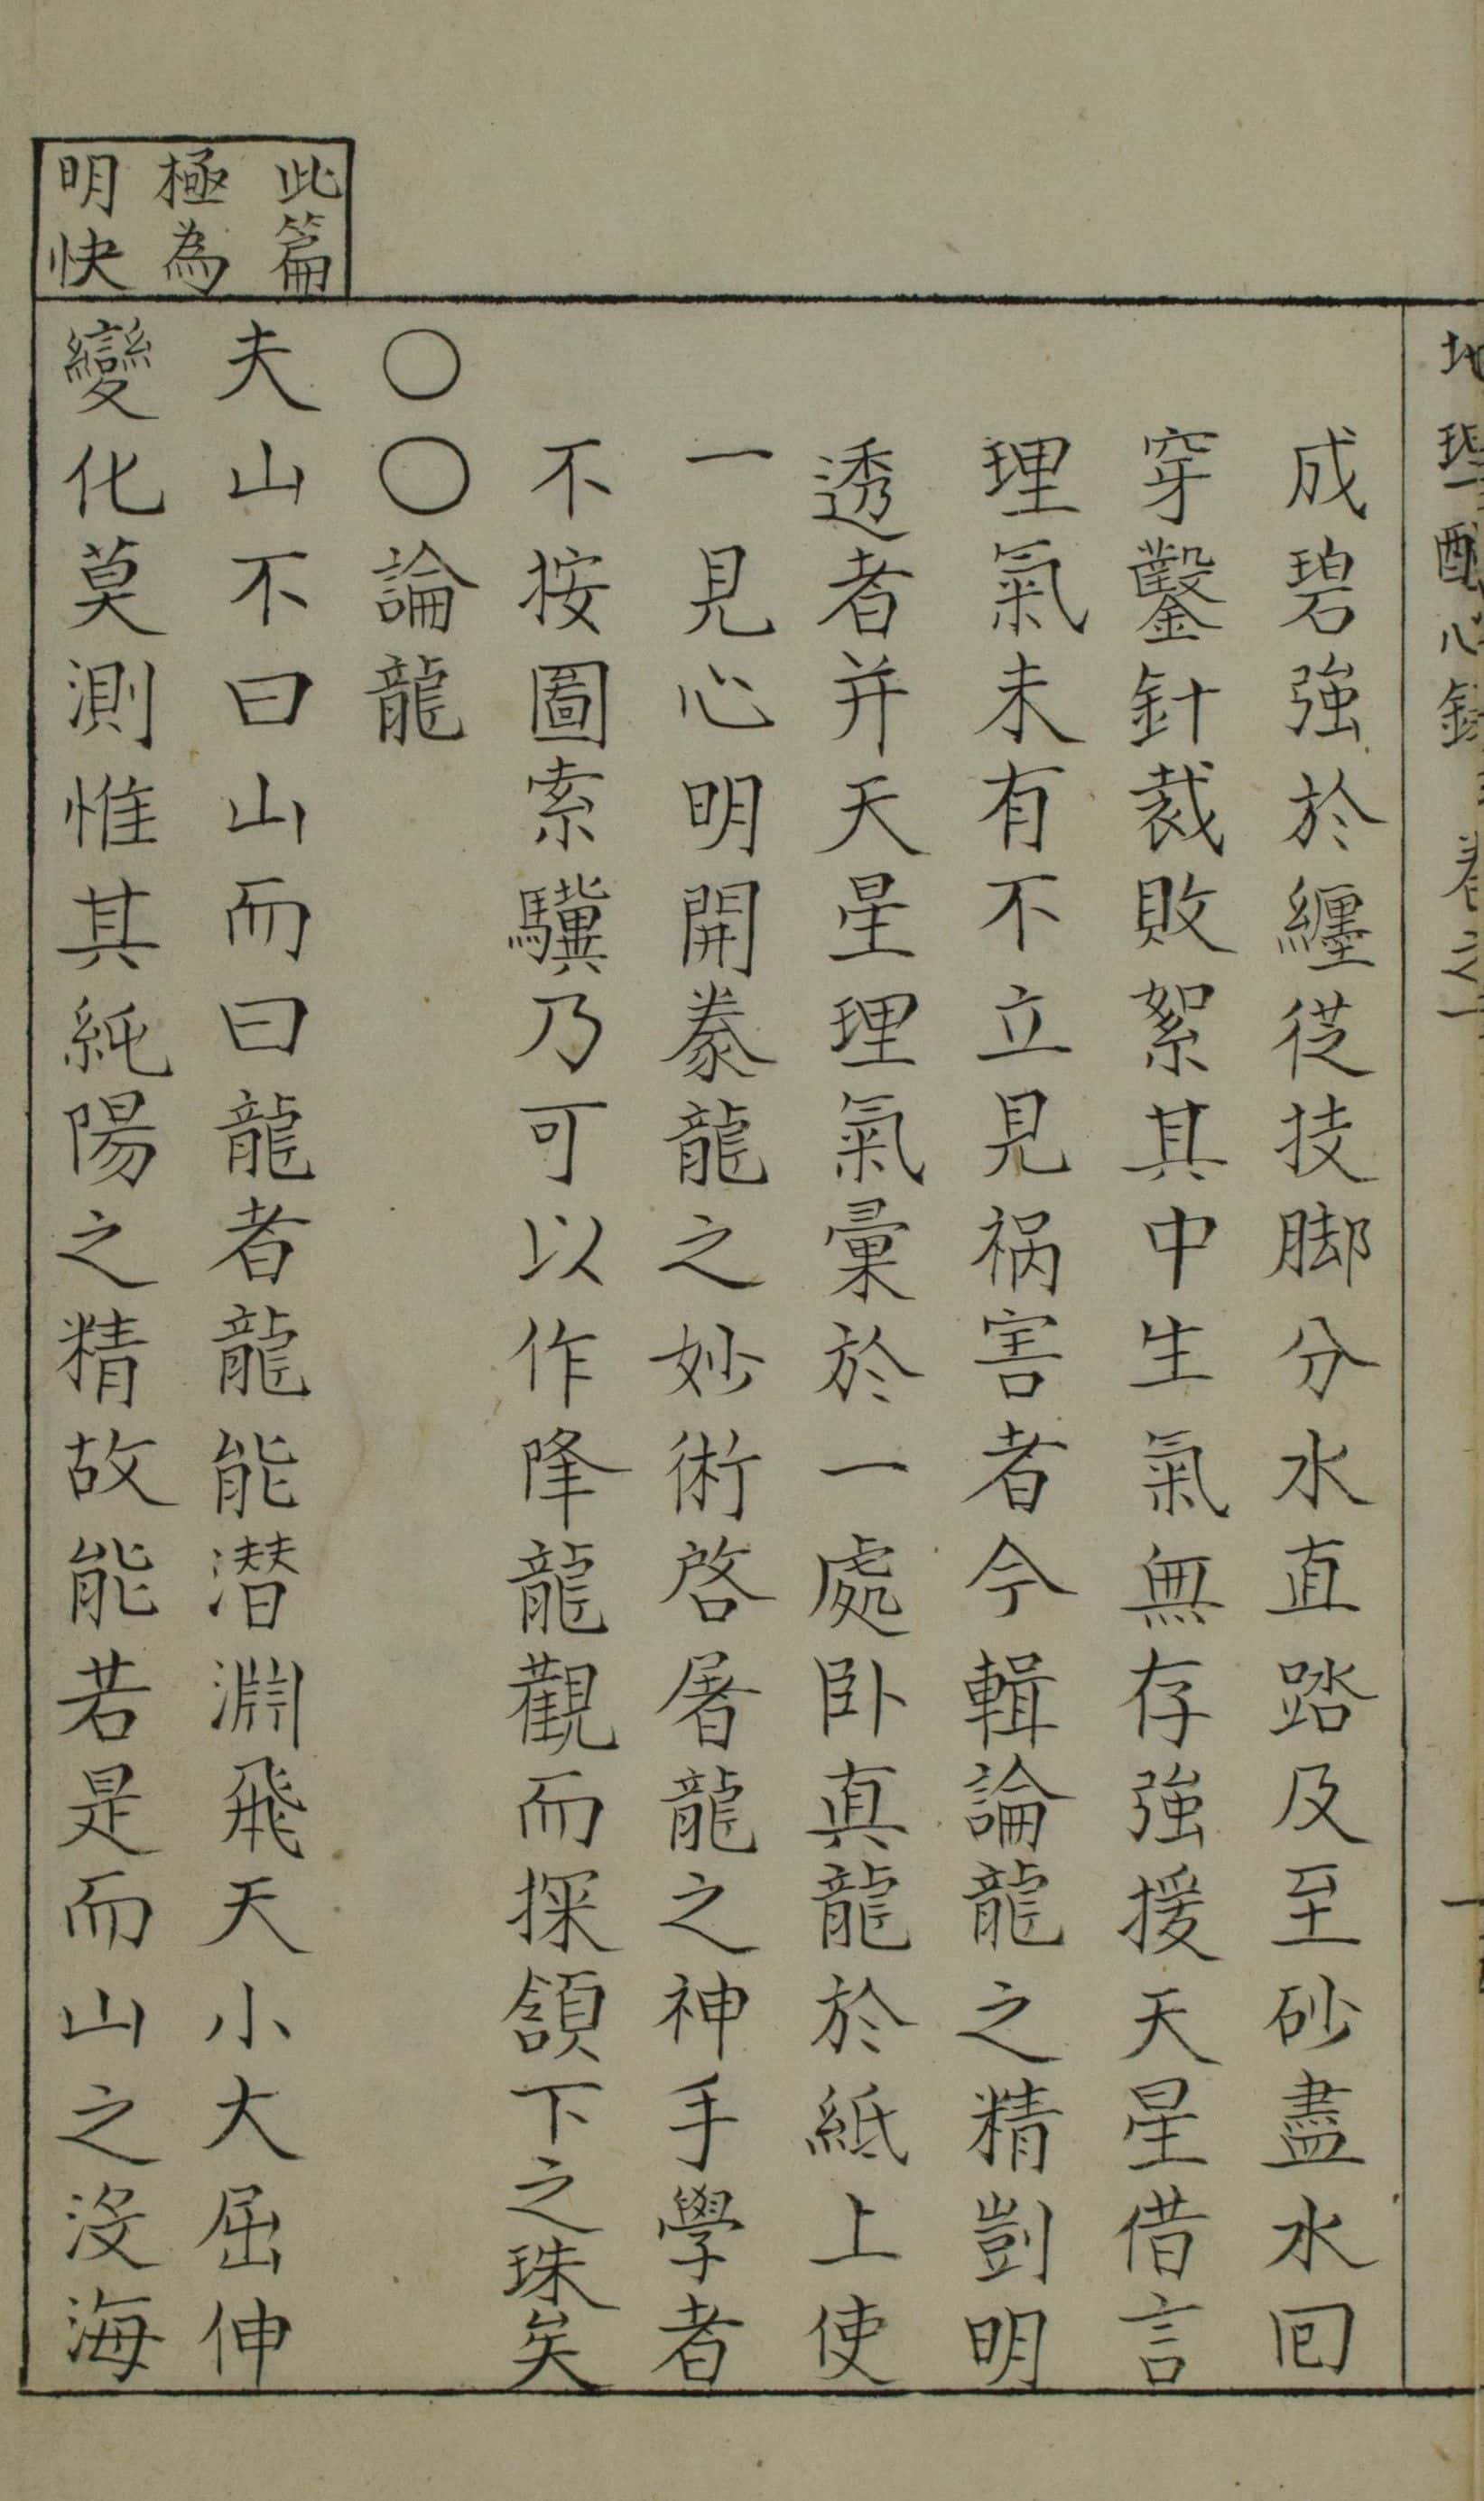 成碧強於纏從技脚分水直踏及至砂盡水回
穿鑿針裁敗絮其中生氣無存強援天星借言
理氣未有不立見禍害者今輯論龍之精剴明
透者并天星理氣彙於一處卧真龍於紙上使
一見心明開豢龍之妙術啓屠龍之神手學者
不按圖索驥乃可以作降龍觀而探頷下之珠矣
〇〇論龍
此篇
極為
明快
夫山不曰山而曰龍者龍能潛淵飛天小大屈伸
變化莫測惟其純陽之精故能若是而山之沒海